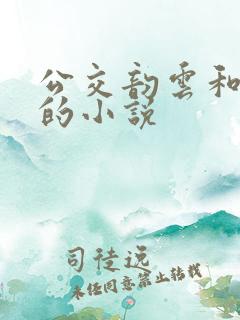 公交韵雲和
的小说
司徒远
未经同意禁止转载